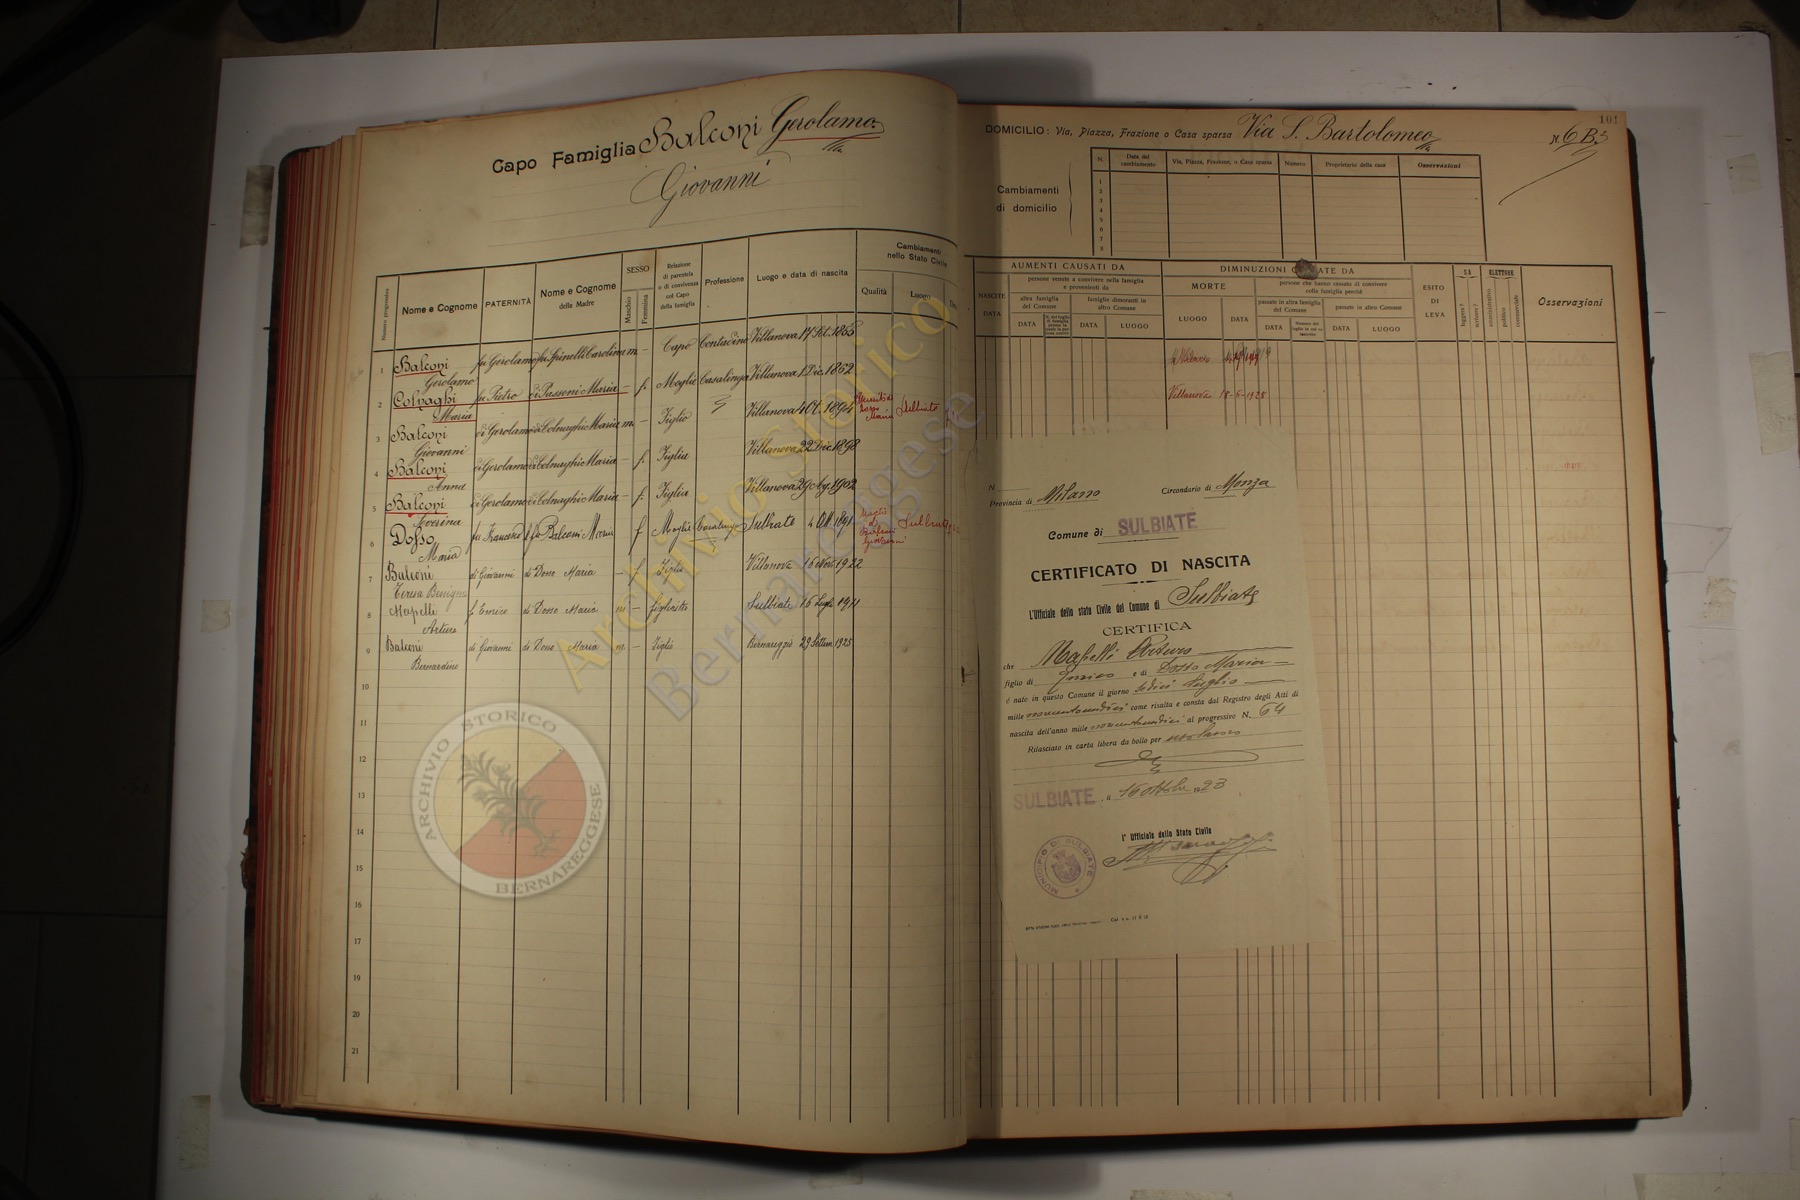 Capo Famiglia Balconi Gerolamo
Giovanni
Numero progressivo
Nome e Cognome
PATERNITÀ
Nome e Cognome
della Madre
SESSO
Maschio
Femmina
Relazione
di parentela
o di convivenza
col Capo
della famiglia
Professione
Luogo e data di nascita
Cambiamenti
nello Stato Civile
Qualità
Luogo
1 Balconi Gerolamo fu Gerolamo fu Spinelli Carolina m. – Capo Contadino Villanova 17 Set. 1865
2 Colnaghi Maria fu Pietro di Passoni Maria – f. Moglie Casalinga Villanova 1 Dic. 1862
3 Balconi Giovanni di Gerolamo di Colnaghi Maria m. – Figlio Villanova 4 Ot. 1894 Maria Sulbiate
4 Balconi Anna di Gerolamo di Colnaghi Maria – f. Figlia Villanova 22 Dic. 1898
5 Balconi di Gerolamo di Colnaghi Maria – f. Figlia Villanova 29 Ag. 1902
6 Dosso Maria fu Francesco fu Balconi Maria f Moglie Casalinga Sulbiate 4 Ott. 1891 Moglie di Balconi Giovanni Sulbiate
7 Balconi Teresa Benigna di Giovanni di Dosso Maria – f Figlia Villanova 16 Nov. 1922
8 Mapelli Arturo f Enrico di Dosso Maria m – figliastro Sulbiate 16 Luglio 1911
9 Balconi Bernardino di Giovanni di Dosso Maria m. – Figlio Bernareggio 29 Settem 1925
10
11
12
13
14
15
16
17
18
19
20
21
101
DOMICILIO: Via, Piazza, Frazione o Casa sparsa Via S. Bartolomeo N. 6 B.
Cambiamenti
di domicilio
N.
Data del
cambiamento
Via, Piazza, Frazione, o Casa sparsa
Numero
Proprietario della casa
Osservazioni
1
2
3
4
5
6
7
8
AUMENTI CAUSATI DA
NASCITE
DATA
persone venute a convivere nella famiglia
e provenienti da
altra famiglia
del Comune
famiglie dimoranti in
altro Comune
DATA
DATA
LUOGO
DIMINUZIONI CAUSATE DA
MORTE
LUOGO
DATA
persone che hanno cessato di convivere
colla famiglia perchè
passate in altra famiglia
del Comune
passate in altro Comune
DATA
DATA
LUOGO
ESITO
DI
LEVA
SA
leggere?
scrivere?
ELETTORE
amministrativo
politico
commerciale
Osservazioni
Villanova 18-6-1925
N.
Provincia di Milano Circondario di Monza
Comune di SULBIATE
CERTIFICATO DI NASCITA
L'Ufficiale dello stato Civile del Comune di Sulbiate
CERTIFICA
che Mapelli Arturo
figlio di Enrico e di Dosso Maria
è nato in questo Comune il giorno sedici luglio
mille novecentoundici come risulta e consta dal Registro degli Atti di
nascita dell'anno mille novecentoundici al progressivo N. 64
Rilasciato in carta libera da bollo per uso
SULBIATE, li 16 ottobre 1923
L'Ufficiale dello Stato Civile
MUNICIPIO DI SULBIATE
Archivio Storico
Bernareggese
ARCHIVIO STORICO
BERNAREGGESE